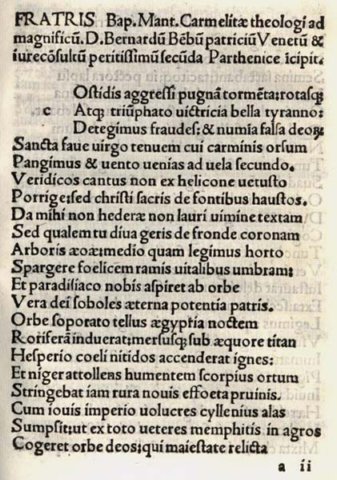 FRATRIS Bap. Mant. Carmelitæ theologi ad
magnificū. D. Bernardū Bēbū patriciū Venetū &
iurecōsultū peritissimū secūda Parthenice īcipit.
Ostidis aggressi pugnā tormēta: rotasq;
c Atq; triūphato uictricia bella tyranno:
Detegimus fraudes: & numīa falsa deoꝝ.
Sancta faue uirgo tenuem cui carminis orsum
Pangimus & uento uenias ad uela secundo.
Veridicos cantus non ex helicone uetusto
Porrige: sed christi sacris de fontibus haustos.
Da mihi non hederæ non lauri uimine textam
Sed qualem tu diua geris de fronde coronam
Arboris æoæ: medio quam legimus horto
Spargere foelicem ramis uitalibus umbram:
Et paradisiaco nobis aspiret ab orbe
Vera dei soboles æterna potentia patris.
Orbe soporato tellus ægyptia noctem
Roriferā induerat: mersusq; sub æquore titan
Hesperio coeli nitidos accenderat ignes:
Et niger attollens humentem scorpius ortum
Stringebat iam rura nouis effoeta pruinis.
Cum iouis imperio uolucres cyllenius alas
Sumpsit: ut ex toto ueteres memphitis in agros
Cogeret orbe deos: qui maiestate relicta
a ii